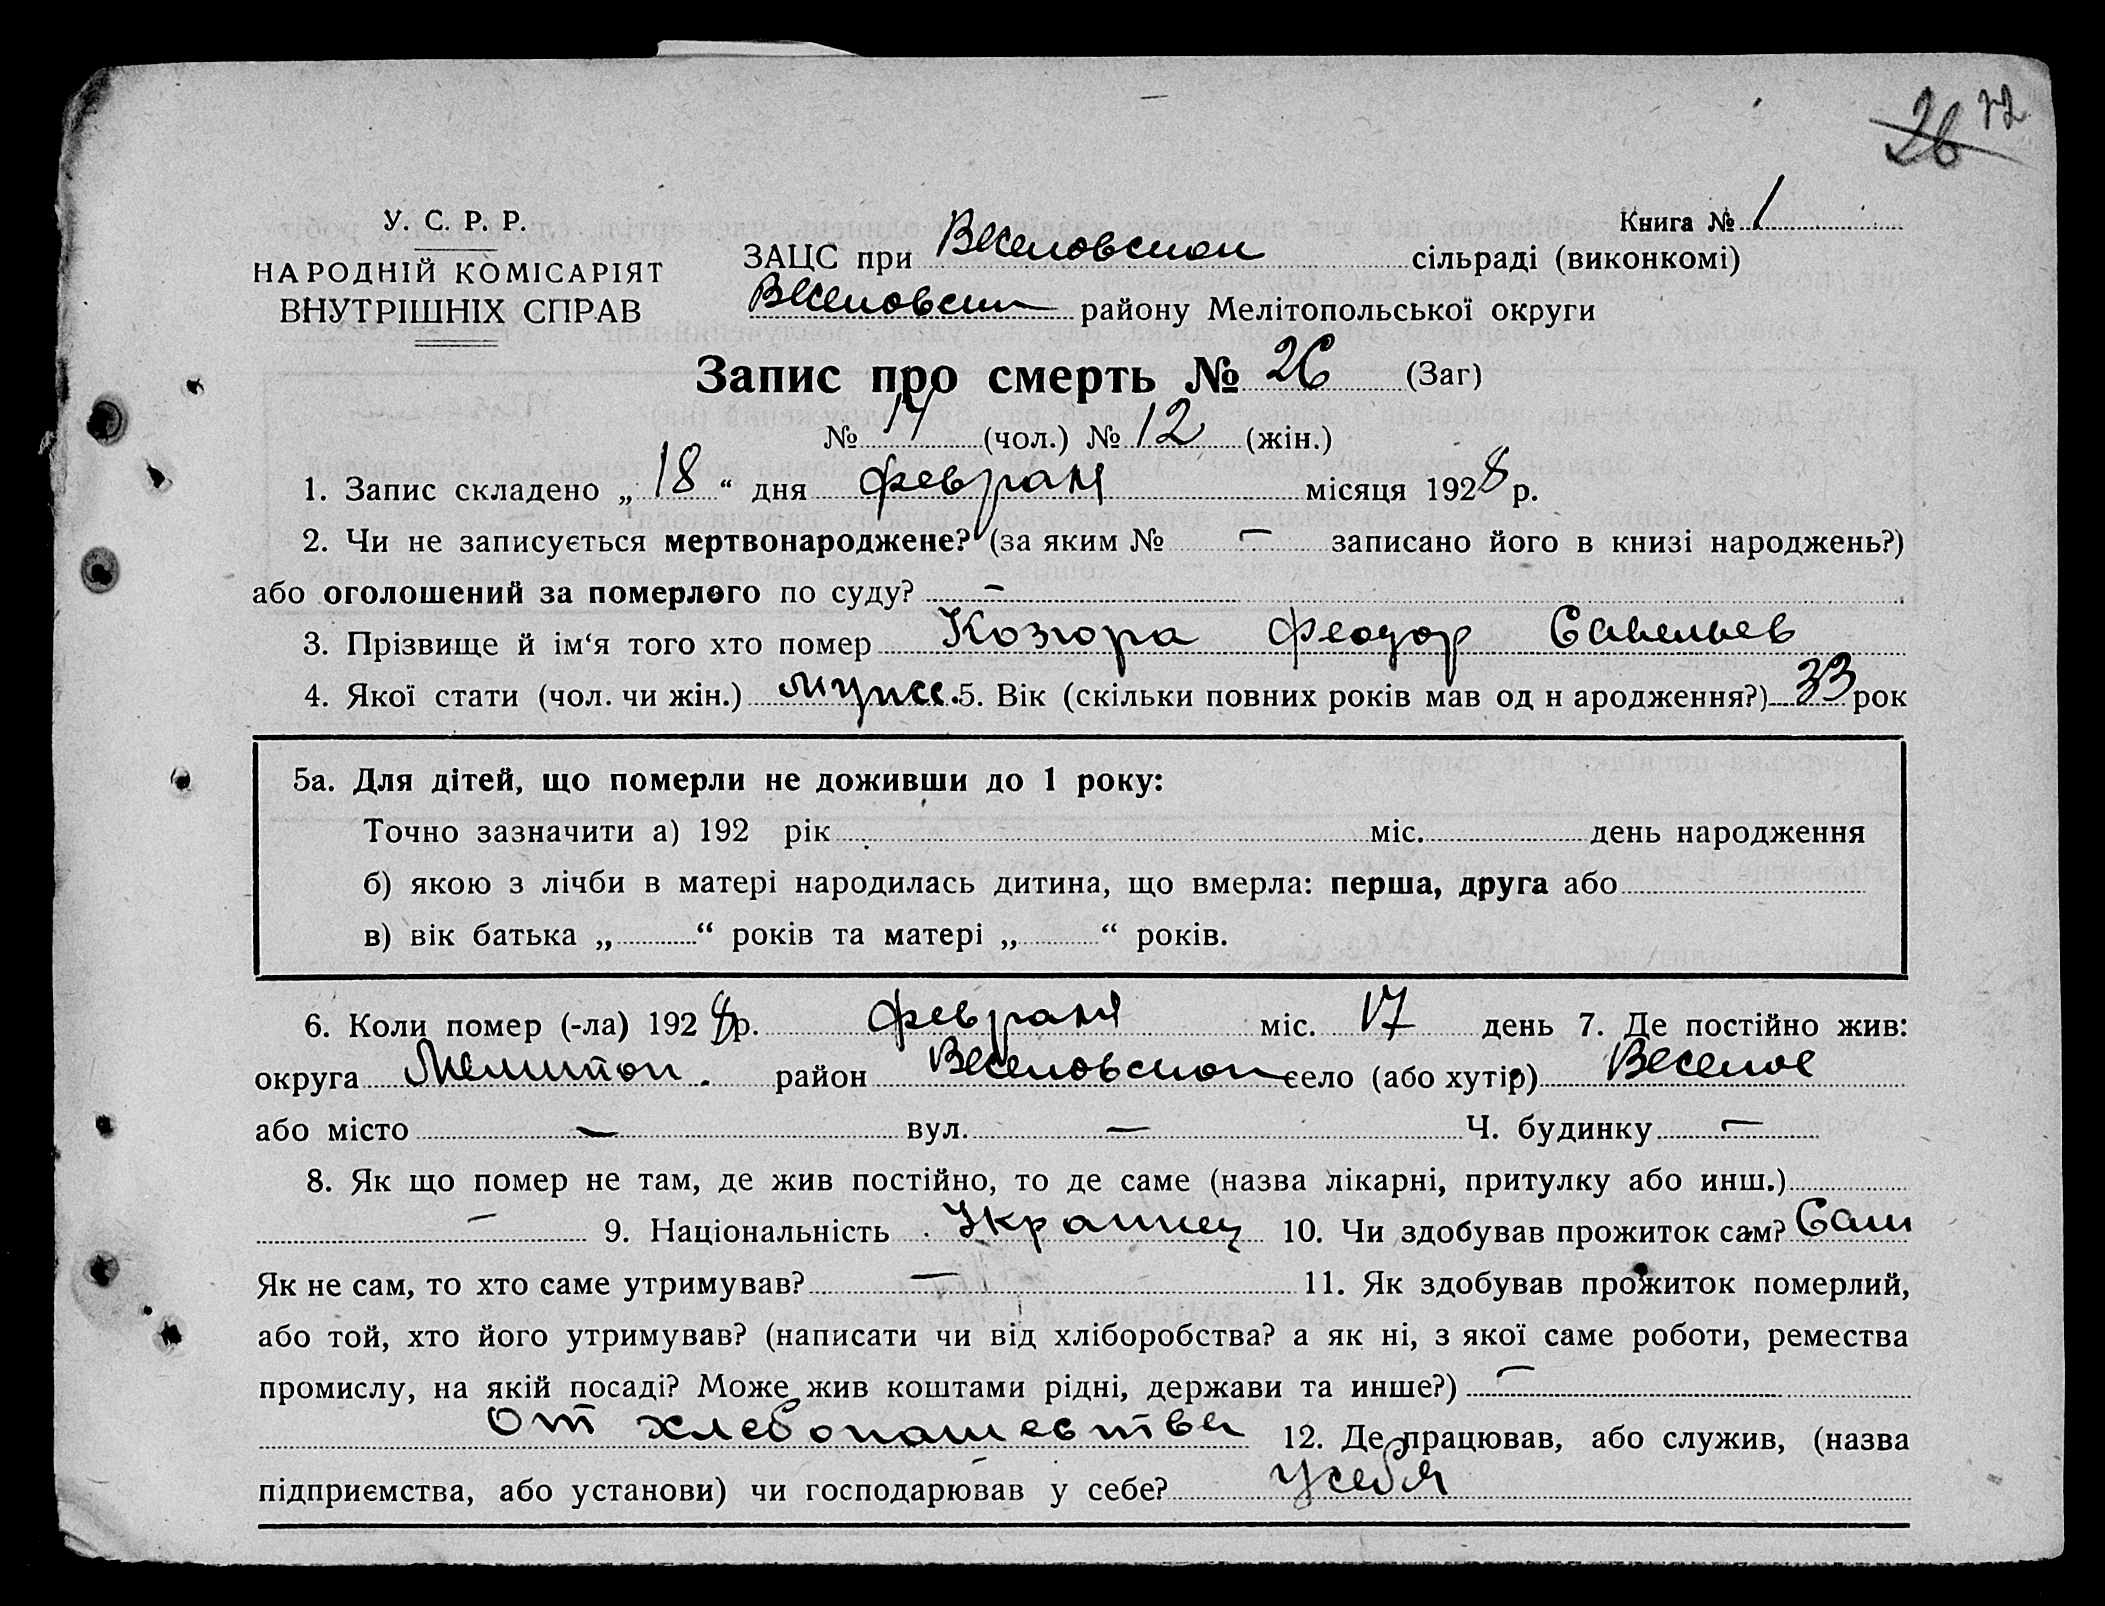 26 72
У. С. Р. Р.
НАРОДНІЙ КОМІСАРІЯТ
ВНУТРІШНІХ СПРАВ
Книга № 1
ЗАЦС при Веселовском сільраді (виконкомі)
Веселовски району Мелітопольської округи
Запис про смерть № 26 (Заг)
№ 14 (чол.) № 12 (жін.)
1. Запис складено „ 18 “ дня февраля місяця 1928 р.
2. Чи не записується мертвонароджене? (за яким № — записано його в книзі народжень?)
або оголошений за померлого по суду? —
3. Прізвище й ім‘я того хто помер Козюра Феодор Савельев
4. Якої стати (чол. чи жін.) Мужс. 5. Вік (скільки повних років мав од н ародження?) 33 рок
5а. Для дітей, що померли не доживши до 1 року:
Точно зазначити а) 192 рік міс. день народження
б) якою з лічби в матері народилась дитина, що вмерла: перша, друга або
в) вік батька „ “ років та матері „ “ років.
6. Коли помер (-ла) 1928 р. февраля міс. 17 день 7. Де постійно жив:
округа Мелитоп. район Веселовском село (або хутір) Веселое
або місто — вул. — Ч. будинку —
8. Як що помер не там, де жив постійно, то де саме (назва лікарні, притулку або инш.)
— 9. Національність Украинец 10. Чи здобував прожиток сам? Сам
Як не сам, то хто саме утримував? — 11. Як здобував прожиток померлий,
або той, хто його утримував? (написати чи від хліборобства? а як ні, з якої саме роботи, ремества
промислу, на якій посаді? Може жив коштами рідні, держави та инше?) —
От хлебопашества 12. Де працював, або служив, (назва
підприємства, або установи) чи господарював у себе? У себя